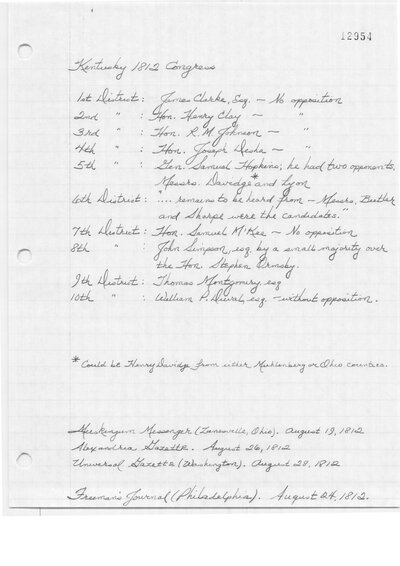 12954
Kentucky 1812 Congress
1st District: James Clarke, Esq. - No opposition
2nd " : Hon. Henry Clay - "
3rd " : Hon. R. M. Johnson - "
4th " : Hon. Joseph Desha - "
5th " : Gen. Samuel Hopkins; he had two opponents,
Messrs. Davedge* and Lyon
6th District: ".... remains to be heard from - Messrs. Butler
and Sharpe were the candidates."
7th District: Hon. Samuel M'Kee - No opposition
8th " : John Simpson, esq. by a small majority over
the Hon. Stephen Ormsby.
9th District: Thomas Montgomery, esq
10th " : William P. Duval, esq. - without opposition.
* Could be Henry Davidge from either Muhlenberg or Ohio counties.
Muskingum Messenger (Zanesville, Ohio). August 19, 1812
Alexandria Gazette. August 26, 1812
Universal Gazette (Washington). August 28, 1812
Freeman's Journal (Philadelphia). August 24, 1812.